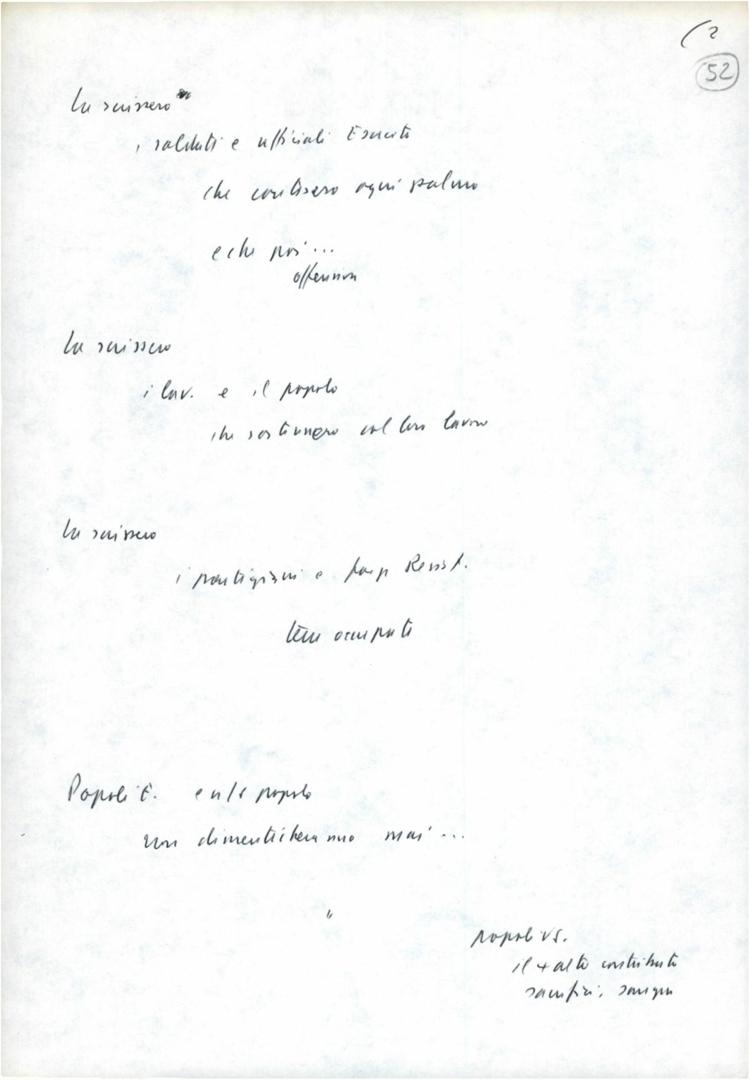 ( 2
52
La scrissero
i soldati e ufficiali Esercito
che contesero ogni palmo
e che poi...
offensiva
La scrissero
i lav. e il popolo
che sostennero col loro lavoro
La scrissero
i partigiani e Resist.
terre occupate
Popoli E. e n/s popolo
non dimenticheranno mai...
"
popoli US.
il + alto contributo
sacrifici, sangue